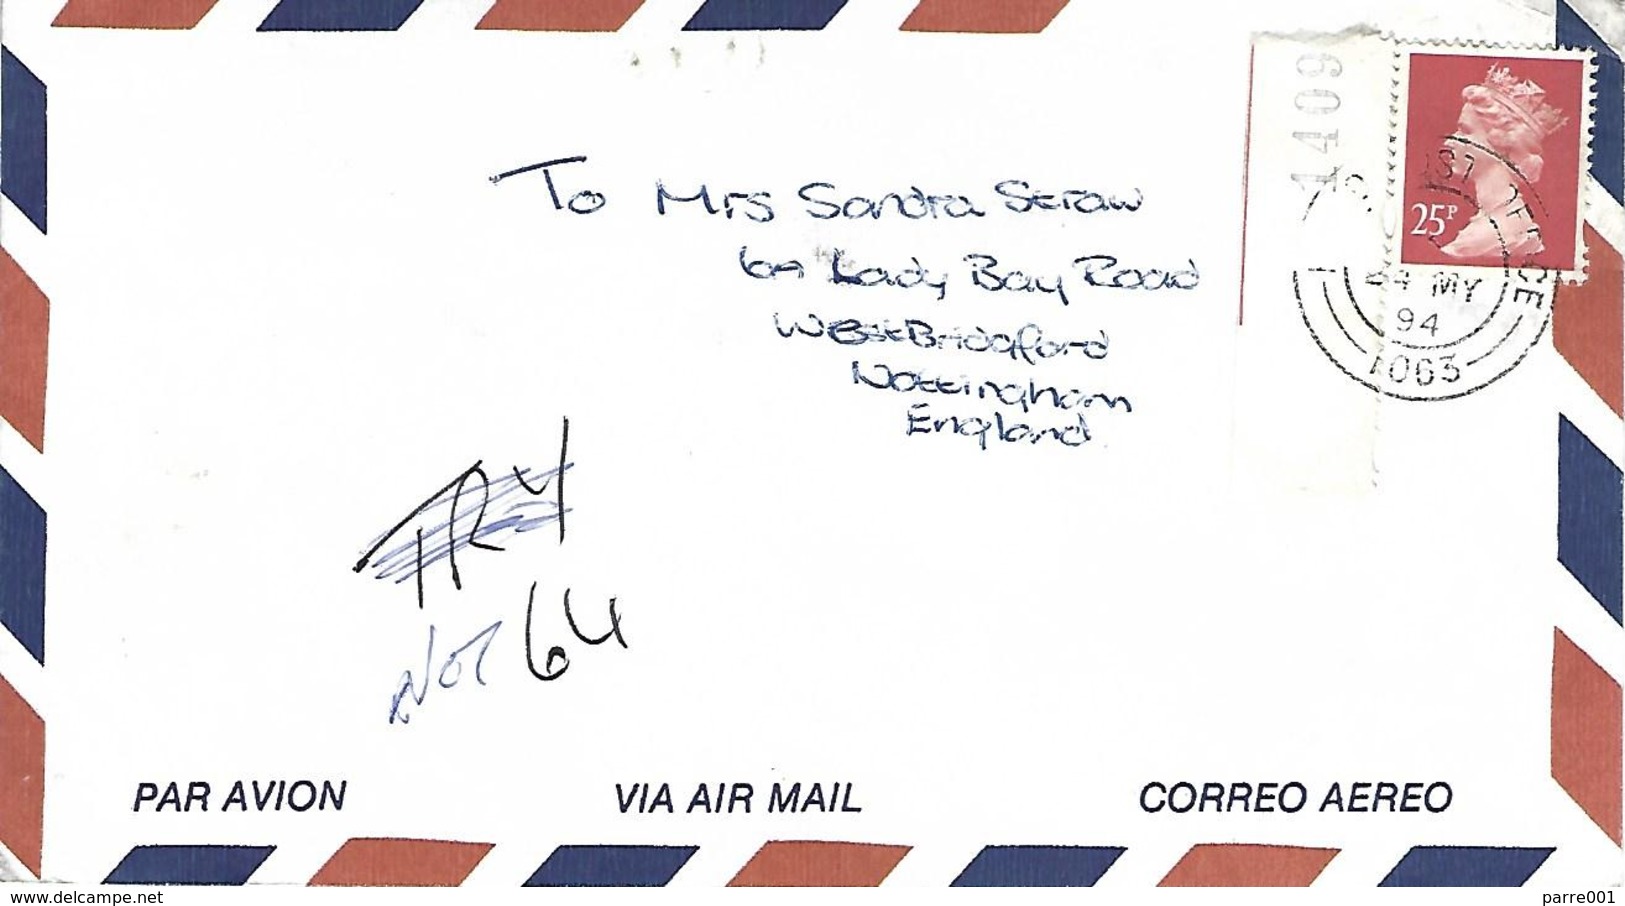 1409
25P
POST OFFICE
24 MY
94
1063
To Mrs Sandra Straw
6A Lady Bay Road
West Bridgford
Nottingham
England
TRY
NOT 64
PAR AVION VIA AIR MAIL CORREO AEREO
the-collection.delcampe.net parre001